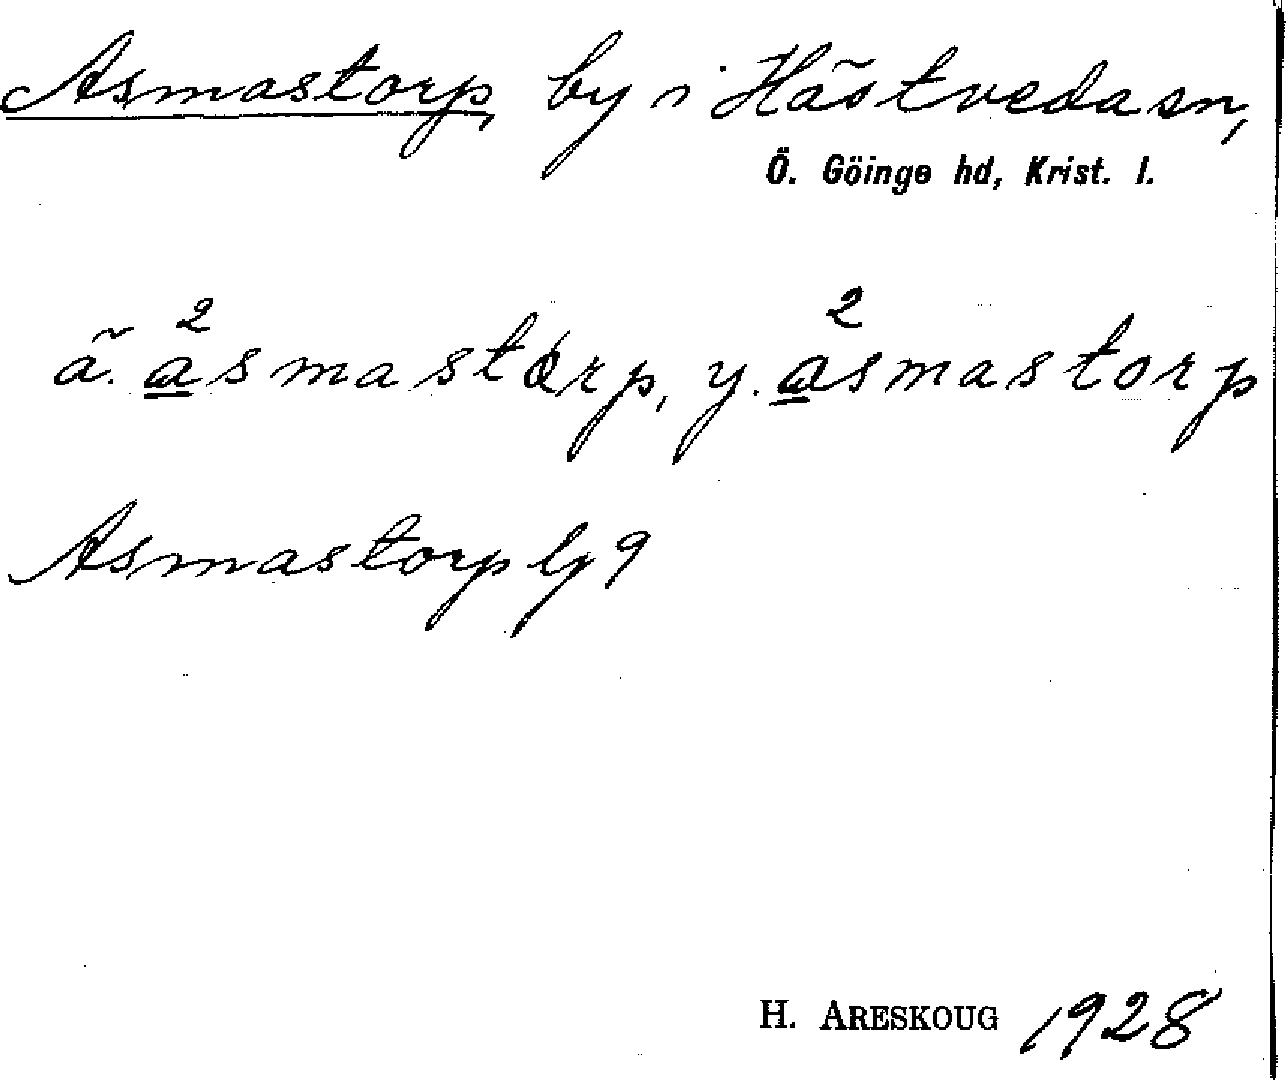 Asmastorp, by i Hästveda sn,
Ö. Göinge hd, Krist. l.
ä. a²smastorp, y. a²smastorp
Asmastorp lg 9
H. ARESKOUG 1928